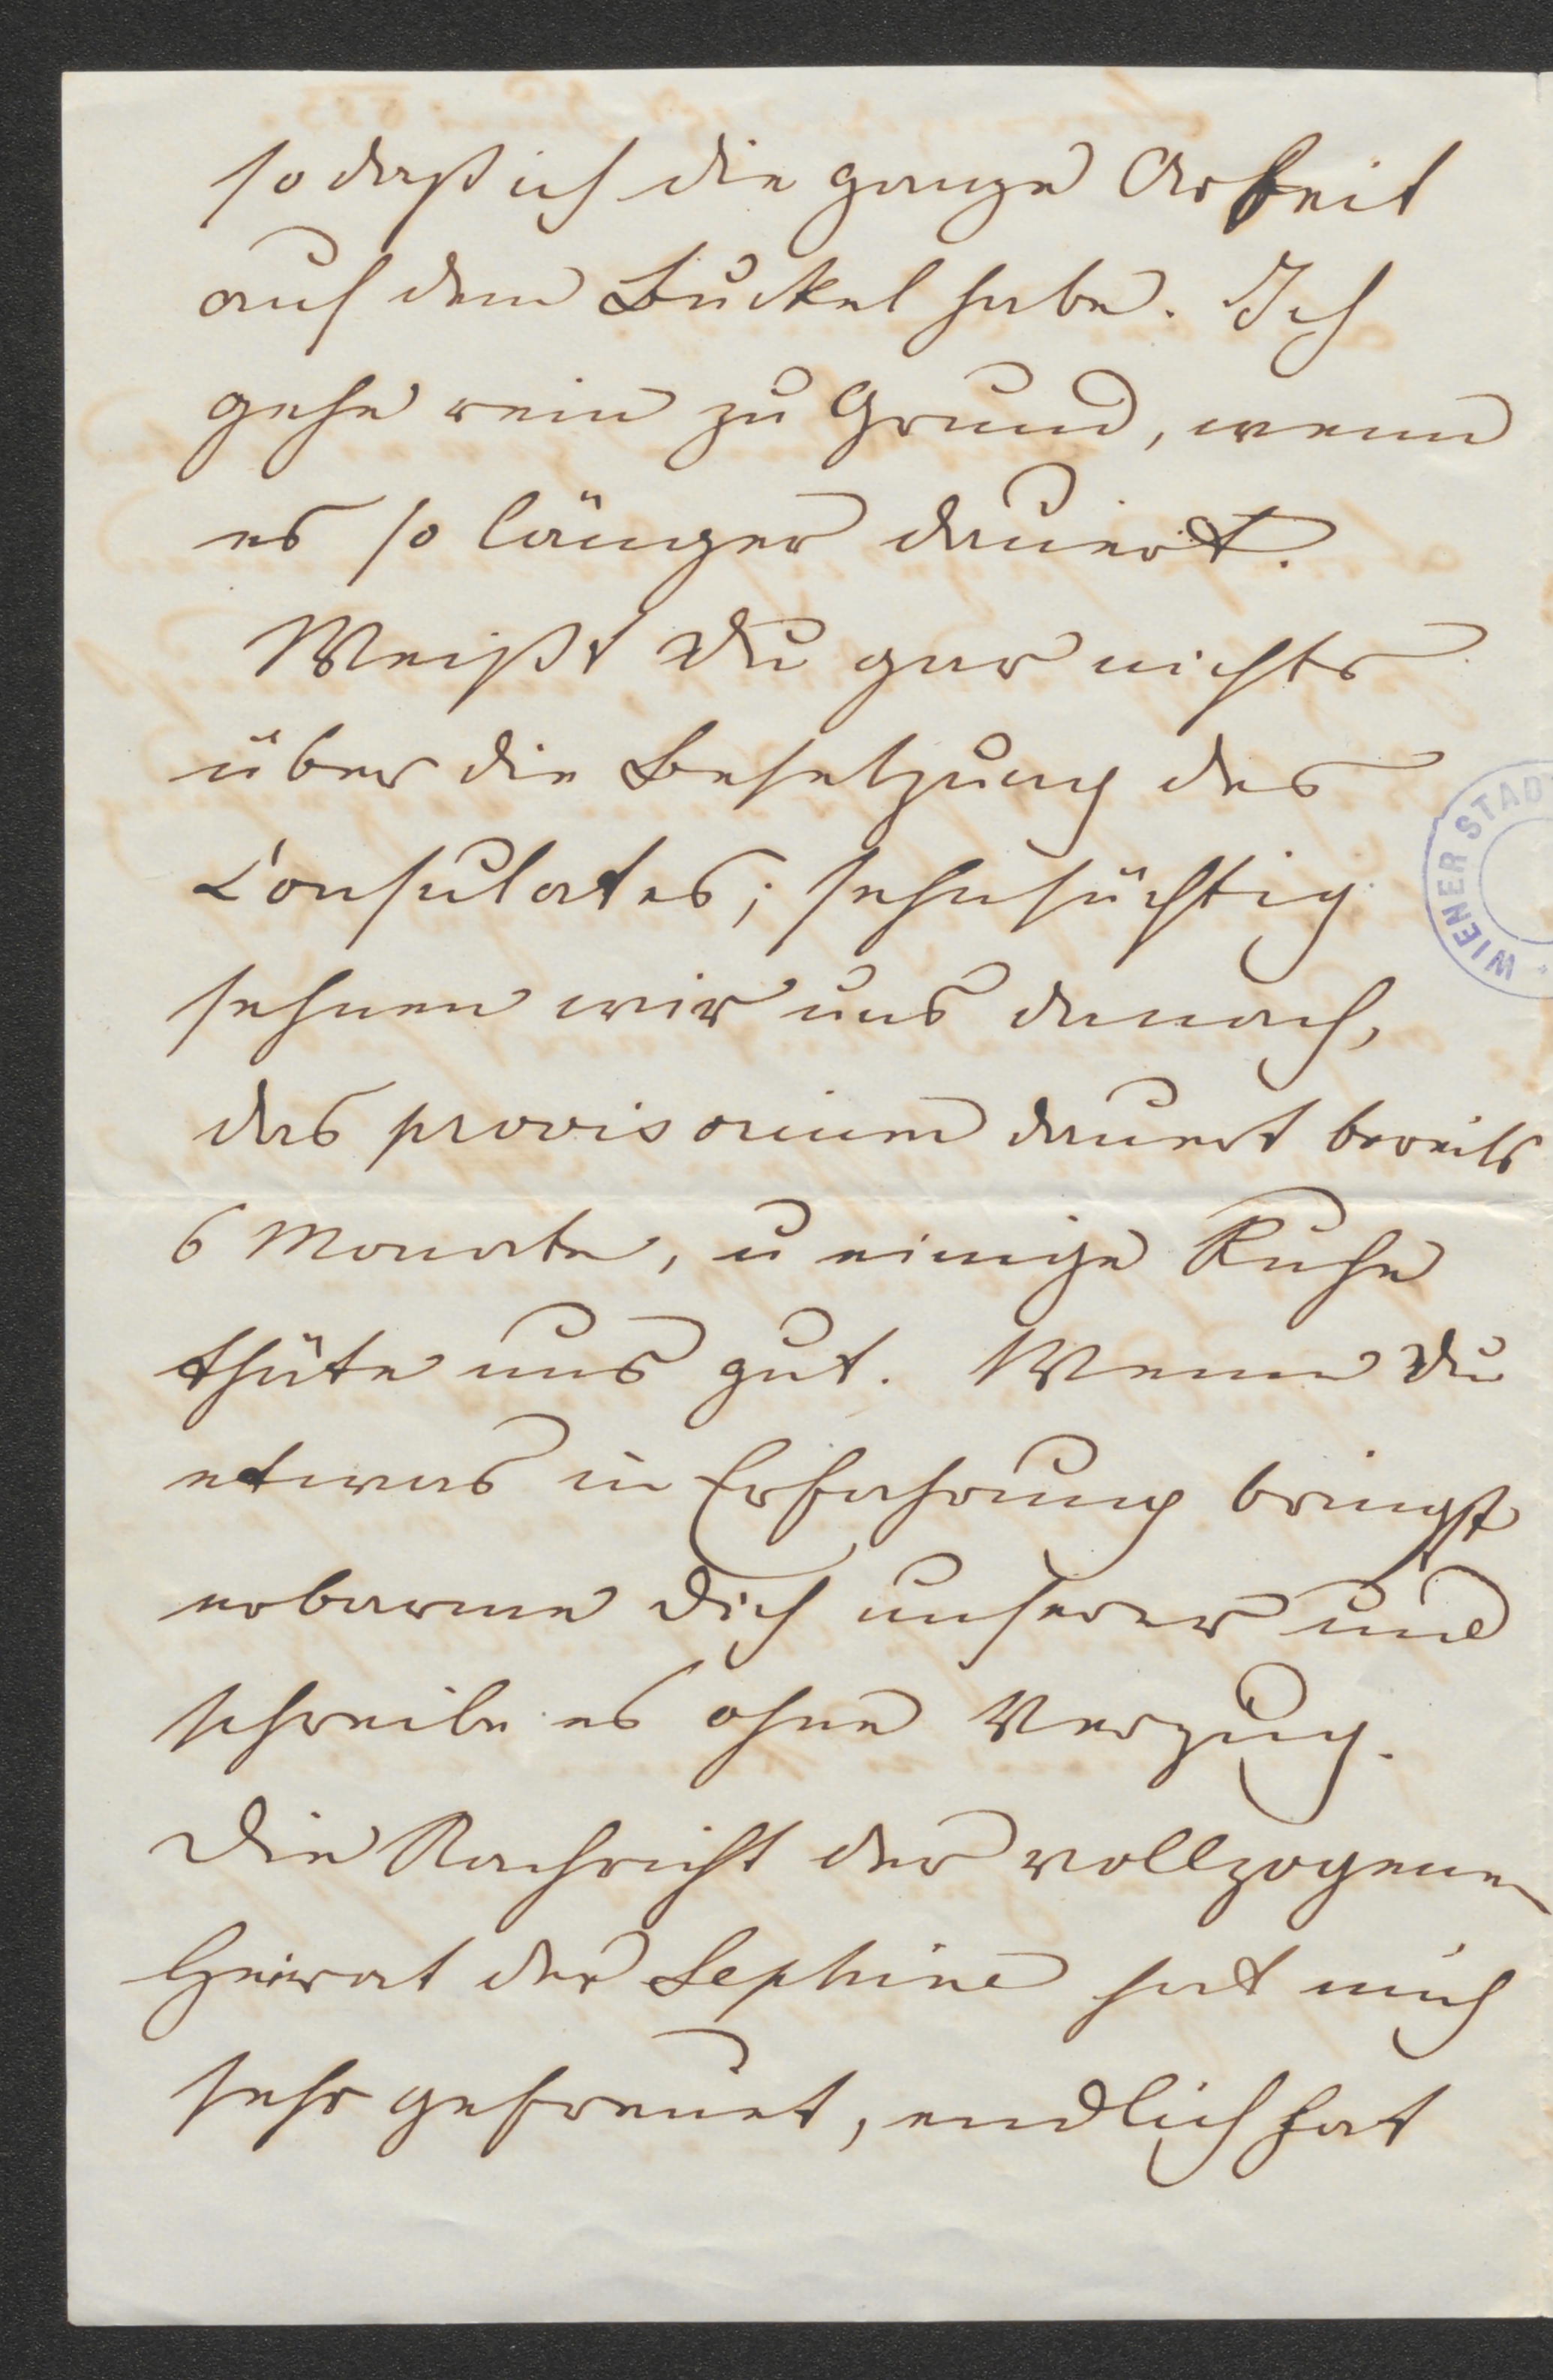 so daß ich die ganze Arbeit
auf dem Buckel habe. Ich
gehe rein zu Grund, wenn
es so länger dauert.
Weißt Du gar nichts
über die Besetzung des
Consulates; sehnsüchtig
sehnen wir uns danach,
das provisorium dauert bereits
6 Monate, u einige Ruhe
thäte uns gut. Wenn Du
etwas in Erfahrung bringst
erbarme Dich unserer und
schreibe es ohne Verzug.
Die Nachricht der vollzogenen
Heirat der Sephine hat mich
sehr gefreuet, endlich hat
WIENER STAD